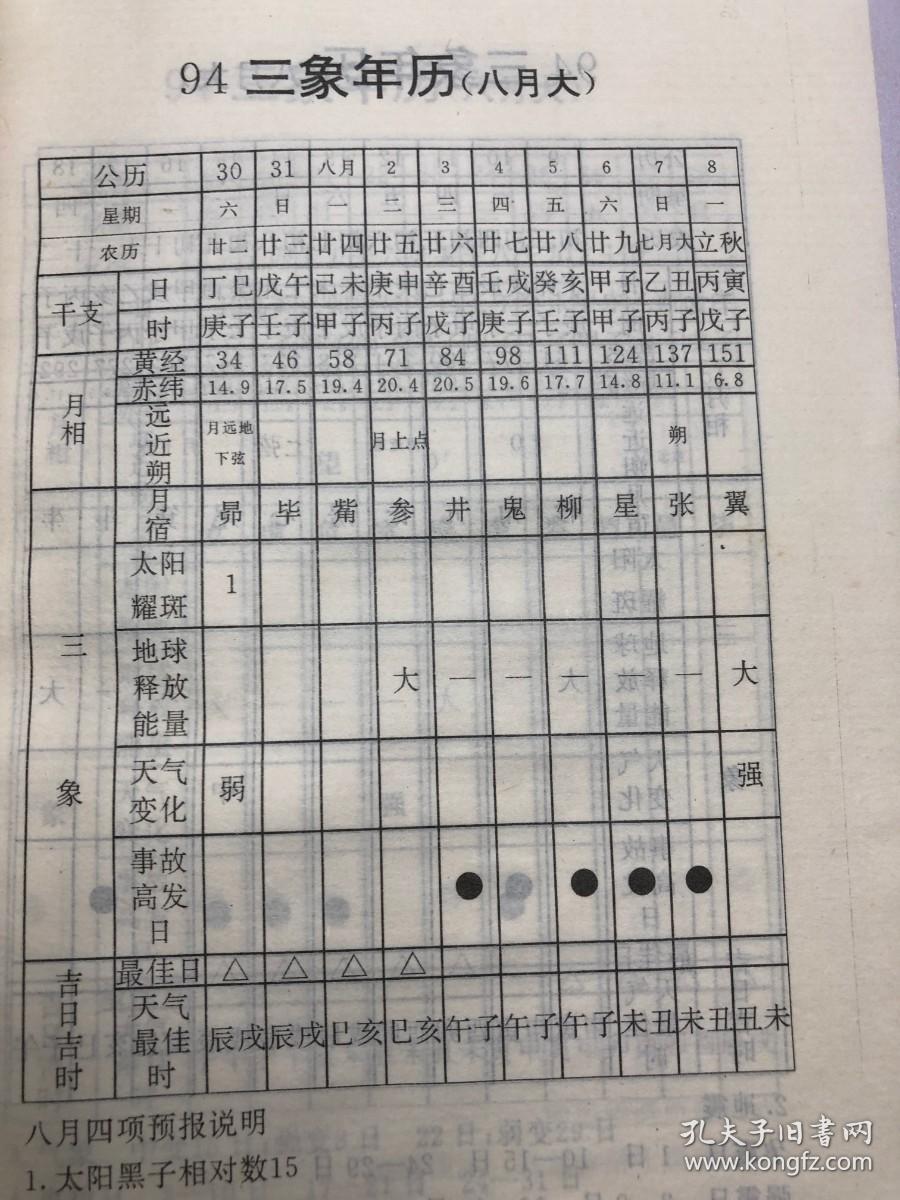 94 三象年历(八月大)
公历 30 31 八月 2 3 4 5 6 7 8
星期 六 日 一 二 三 四 五 六 日 一
农历 廿二 廿三 廿四 廿五 廿六 廿七 廿八 廿九 七月大 立秋
干支 日 丁巳 戊午 己未 庚申 辛酉 壬戌 癸亥 甲子 乙丑 丙寅
时 庚子 壬子 甲子 丙子 戊子 庚子 壬子 甲子 丙子 戊子
月相 黄经 34 46 58 71 84 98 111 124 137 151
赤纬 14.9 17.5 19.4 20.4 20.5 19.6 17.7 14.8 11.1 6.8
远近朔 月远地下弦 月上点 朔
三象 月宿 昴 毕 觜 参 井 鬼 柳 星 张 翼
太阳耀斑 1
地球释放能量 大 — — — — — 大
天气变化 弱 强
事故高发日 ● ● ● ●
吉日吉时 最佳日 △ △ △ △
天气最佳时 辰戌 辰戌 巳亥 巳亥 午子 午子 午子 未丑 未丑 丑未
八月四项预报说明
1.太阳黑子相对数15
孔夫子旧书网
www.kongfz.com